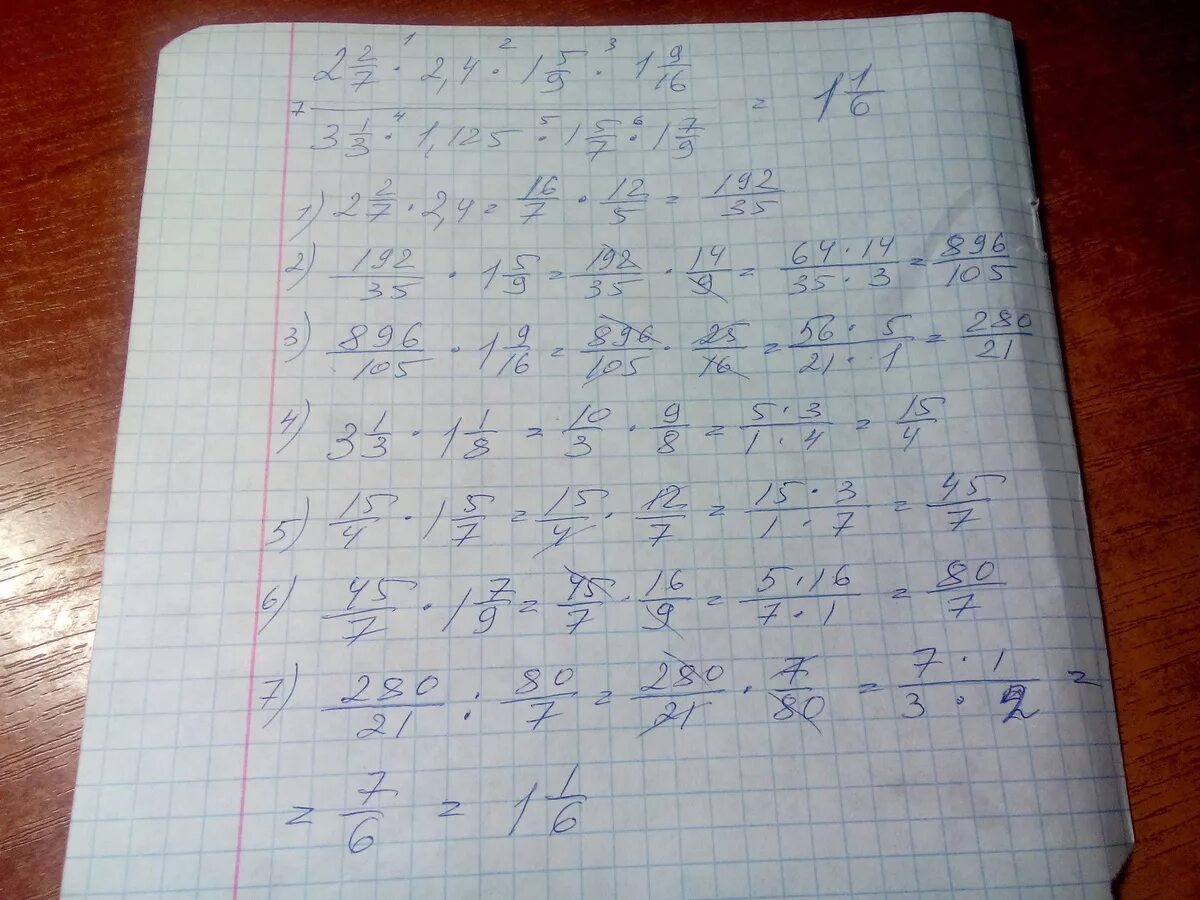 2 2/7 ·¹ 2,4 ·² 1 5/9 ·³ 1 9/16
7 ———————— = 1 1/6
3 1/3 ·⁴ 1,125 ·⁵ 1 5/7 ·⁶ 1 7/9
1) 2 2/7 · 2,4 = 16/7 · 12/5 = 192/35
2) 192/35 · 1 5/9 = 192/35 · 14/9 = 64·14/35·3 = 896/105
3) 896/105 · 1 9/16 = 896/105 · 25/16 = 56·5/21·1 = 280/21
4) 3 1/3 · 1 1/8 = 10/3 · 9/8 = 5·3/1·4 = 15/4
5) 15/4 · 1 5/7 = 15/4 · 12/7 = 15·3/1·7 = 45/7
6) 45/7 · 1 7/9 = 45/7 · 16/9 = 5·16/7·1 = 80/7
7) 280/21 : 80/7 = 280/21 · 7/80 = 7·1/3·2 =
= 7/6 = 1 1/6